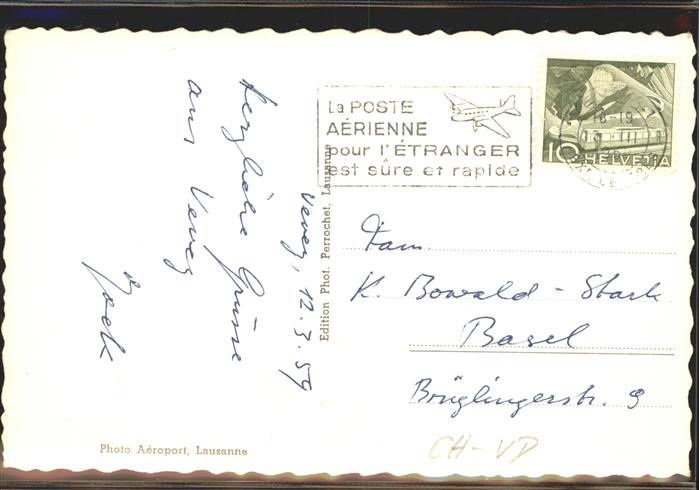 La POSTE
AÉRIENNE
pour l'ÉTRANGER
est sûre et rapide
18-19
10 HELVETIA
Herzliche Grüsse
aus Vevey
Jack
Vevey, 12.3.59
Edition Phot. Perrochet, Lausanne
Fam.
K. Bowald - Stark
Basel
Brüglingerstr. 9
CH-VD
Photo Aéroport, Lausanne